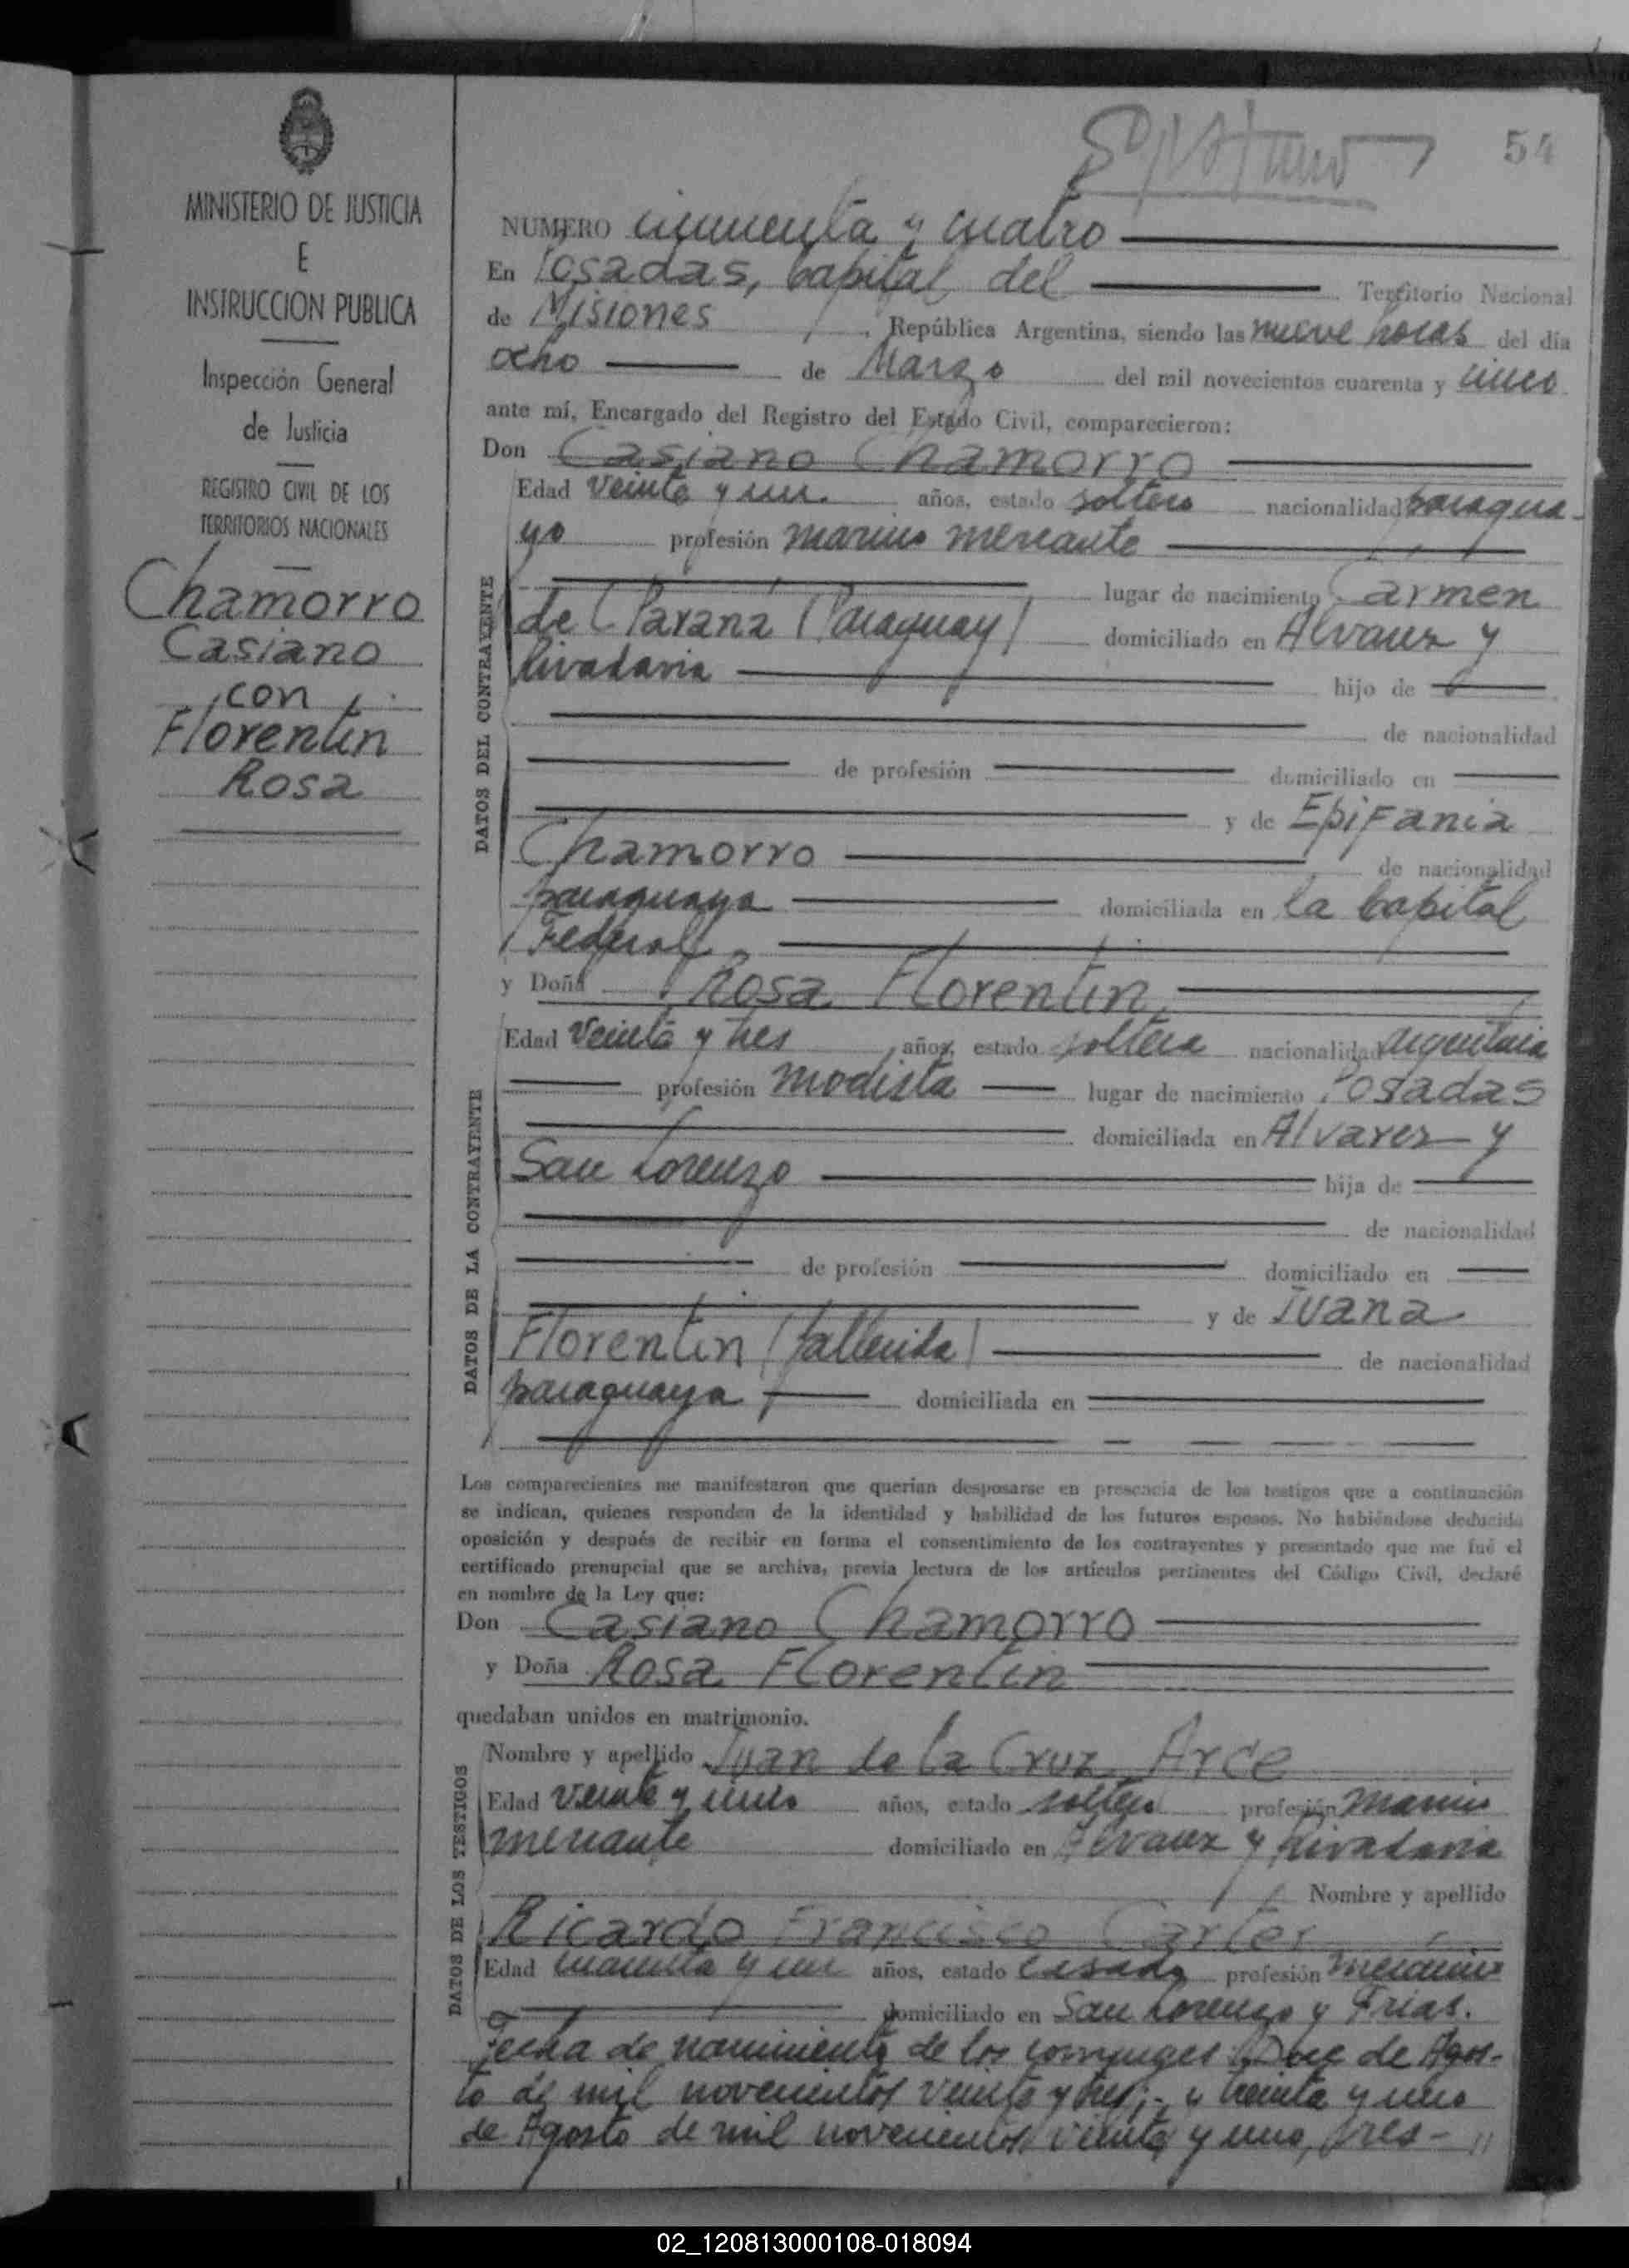 54
MINISTERIO DE JUSTICIA
E
INSTRUCCION PUBLICA
Inspección General
de Justicia
REGISTRO CIVIL DE LOS
TERRITORIOS NACIONALES
Chamorro
Casiano
con
Florentín
Rosa
NUMERO cincuenta y cuatro
En Posadas, Capital del Territorio Nacional
de Misiones, República Argentina, siendo las nueve horas del día
ocho de Marzo del mil novecientos cuarenta y cinco
ante mí, Encargado del Registro del Estado Civil, comparecieron:
Don Casiano Chamorro
DATOS DEL CONTRAYENTE
Edad veinte y un años, estado soltero nacionalidad paragua-
yo profesión marino mercante
lugar de nacimiento Carmen
de Paraná (Paraguay) domiciliado en Alvarez y
Rivadavia hijo de
de nacionalidad
de profesión domiciliado en
y de Epifania
Chamorro de nacionalidad
paraguaya domiciliada en la Capital
Federal
y Doña Rosa Florentín
DATOS DE LA CONTRAYENTE
Edad veinte y tres años, estado soltera nacionalidad argentina
profesión modista lugar de nacimiento Posadas
domiciliada en Alvarez y
San Lorenzo hija de
de nacionalidad
de profesión domiciliado en
y de Juana
Florentín (fallecida) de nacionalidad
paraguaya domiciliada en
Los comparecientes me manifestaron que querían desposarse en presencia de los testigos que a continuación
se indican, quienes responden de la identidad y habilidad de los futuros esposos. No habiéndose deducido
oposición y después de recibir en forma el consentimiento de los contrayentes y presentado que me fué el
certificado prenupcial que se archiva, previa lectura de los artículos pertinentes del Código Civil, declaré
en nombre de la Ley que:
Don Casiano Chamorro
y Doña Rosa Florentín
quedaban unidos en matrimonio.
DATOS DE LOS TESTIGOS
Nombre y apellido Juan de la Cruz Arce
Edad veinte y cinco años, estado soltero profesión marino
mercante domiciliado en Alvarez y Rivadavia
Nombre y apellido
Ricardo Francisco Carter
Edad cuarenta y un años, estado casado profesión mecánico
domiciliado en San Lorenzo y Frias.
Fecha de nacimiento de los conyuges: Doce de Agos-
to de mil novecientos veinte y tres;- y treinta y uno
de Agosto de mil novecientos veinte y uno, res-//
02_120813000108-018094